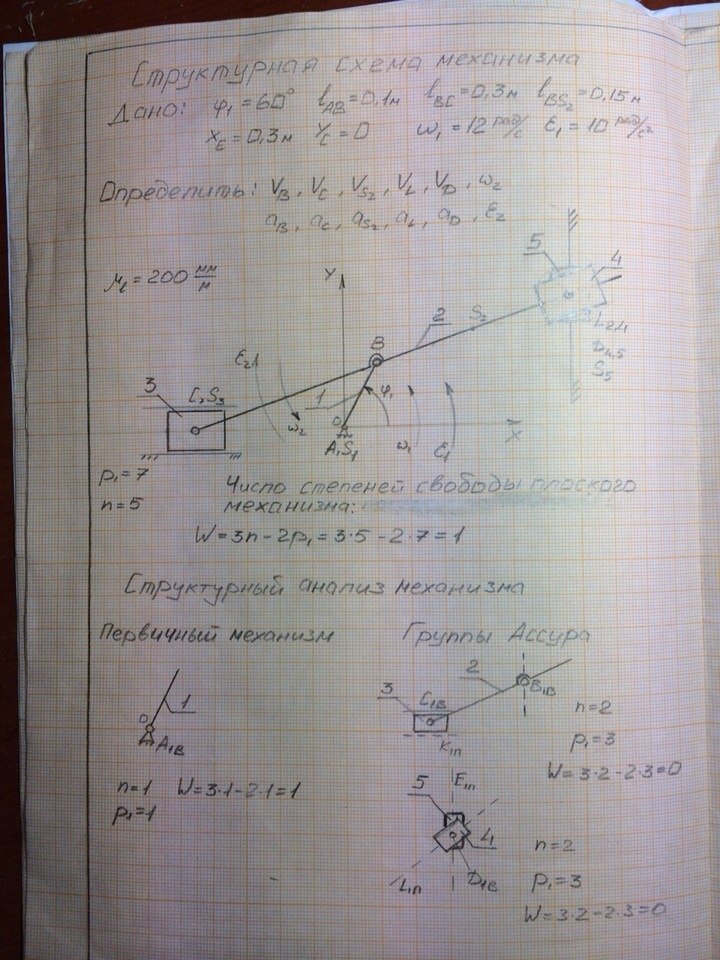 Структурная схема механизма
Дано: φ₁=60° l_AB=0,1м l_BC=0,3м l_BS₂=0,15м
X_E=0,3м Y_C=0 ω₁=12 рад/с ε₁=10 рад/с²
Определить: V_B, V_C, V_S₂, V_L, V_D, ω₂
a_B, a_C, a_S₂, a_L, a_D, ε₂
μ_l=200 мм/м
Y
5
4
2
S₂
B
S₅
3
C,S₃
ε₂
ω₂
1
φ₁
O
A,S₁
ω₁
ε₁
X
p₁=7
n=5
Число степеней свободы плоского
механизма:
W=3n-2p₁=3·5-2·7=1
Структурный анализ механизма
Первичный механизм
Группы Ассура
1
O
A₁В
n=1 W=3·1-2·1=1
p₁=1
2
3
C₁В
B₁В
K₁п
n=2
p₁=3
W=3·2-2·3=0
5
E₁п
4
L₁п
D₁В
n=2
p₁=3
W=3·2-2·3=0